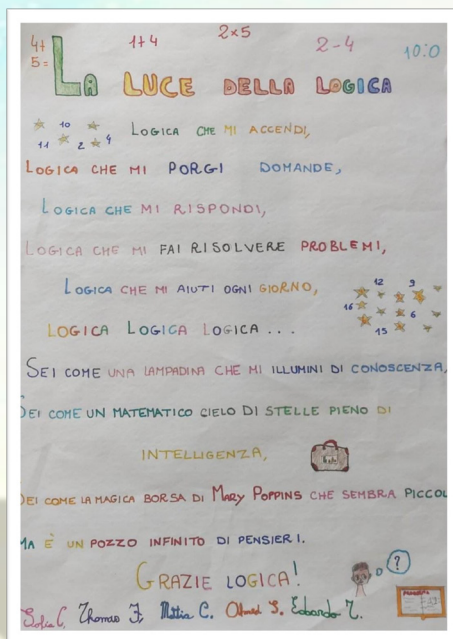 4+ 1+4 2×5 2-4 10:0
5=
LA LUCE DELLA LOGICA
10
11 2 4
LOGICA CHE MI ACCENDI,
LOGICA CHE MI PORGI DOMANDE,
LOGICA CHE MI RISPONDI,
LOGICA CHE MI FAI RISOLVERE PROBLEMI,
LOGICA CHE MI AIUTI OGNI GIORNO,
12 9
16 6
15
LOGICA LOGICA LOGICA...
SEI COME UNA LAMPADINA CHE MI ILLUMINI DI CONOSCENZA,
SEI COME UN MATEMATICO CIELO DI STELLE PIENO DI
INTELLIGENZA,
SEI COME LA MAGICA BORSA DI MARY POPPINS CHE SEMBRA PICCOL
MA È UN POZZO INFINITO DI PENSIERI.
GRAZIE LOGICA!
?
Sofia C. Thomas F. Mattia C. Ahmed S. Edoardo Z.